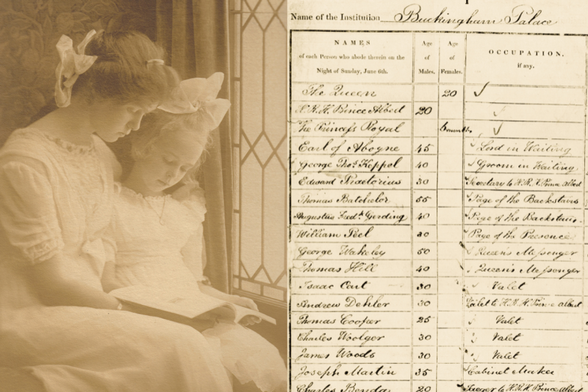 Name of the Institution Buckingham Palace
NAMES
of each Person who abode therein on the
Night of Sunday, June 6th.
Age
of
Males.
Age
of
Females.
OCCUPATION,
if any.
The Queen 20 ✓
H.R.H. Prince Albert 20
The Princess Royal 6 months ✓
Earl of Aboyne 45 Lord in Waiting
George Thos. Keppel 40 Groom in Waiting
Edward Praetorius 30 Secretary to H.R.H. Prince Albert
Thomas Batchelor 55 Page of the Backstairs
Augustus Fredk. Gerding 40 Page of the Backstairs
William Seel Page of the Presence
George Wakeley 50 Queens Messenger
Thomas Hill 40 Queen's Messenger
Isaac Cart 30 Valet
Andrew Dehler 30 Valet to H.R.H. Prince Albert
Thomas Cooper 25 Valet
Charles Woolger 30 Valet
James Woods 30 Valet
Joseph Martin 35 Cabinet Maker
Charles Benda 20 to H.R.H. Prince Albert